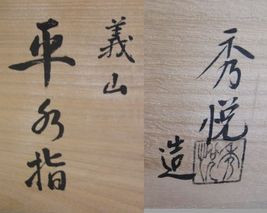 義山
平水指
秀悦
造